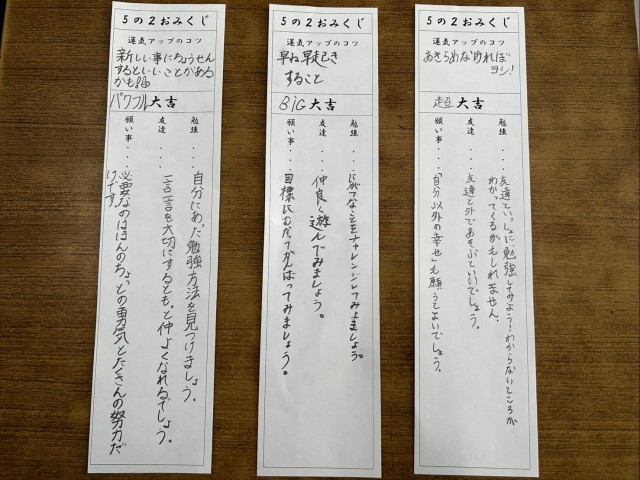 5の2おみくじ
運気アップのコツ
新しい事にちょうせん
するといいことがある
かも!!
パワフル大吉
勉強・・・自分にあった勉強方法を見つけましょう。
友達・・・一言一言を大切にするともっと仲よくなれるでしょう。
願い事・・・必要なのはほんのちょっとの勇気とたくさんの努力だ
けです。
5の2おみくじ
運気アップのコツ
早ね早起き
すること
BIG大吉
勉強・・・にがてなことをチャレンジしてみましょう。
友達・・・仲良く遊んでみましょう。
願い事・・・目標にむかってがんばってみましょう。
5の2おみくじ
運気アップのコツ
あきらめなければ
ヨシ!
超大吉
勉強・・・友達といっしょに勉強してみよう!わからないところが
わかってくるかもしれません。
友達・・・友達と外であそぶといいでしょう。
願い事・・・「自分以外の幸せ」も願うてよいでしょう。